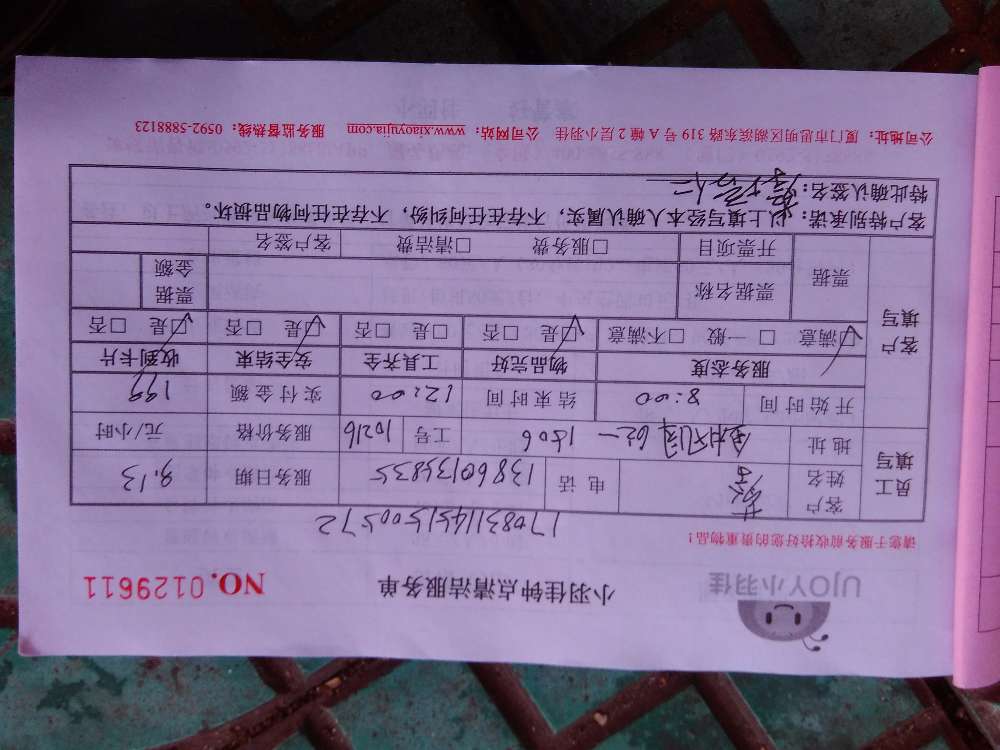 UJOY小羽佳
小羽佳钟点清洁服务单
NO.0129611
请您于服务前收拾好您的贵重物品！
170831145150057 2
员工填写
客户姓名
电话 13860136835 服务日期 9.13
地址 62一1506 工号 10216 服务价格 元/小时
开始时间 8:00 结束时间 12:00 实付金额 199
客户填写
服务态度 物品完好 工具齐全 安全结束 收到卡片
☑满意 □一般 □不满意 ☑是 □否 □是 □否 ☑是 □否 ☑是 □否
票据 票据名称 票据金额
开票项目 □服务费 □清洁费 客户签名
客户特别承诺：以上填写经本人确认属实，不存在任何纠纷，不存在任何物品损坏。
特此确认签名：
公司地址：厦门市思明区湖滨东路 319 号 A 幢 2 层小羽佳 公司网站：www.xiaoyujia.com 服务监督热线：0592-5888123